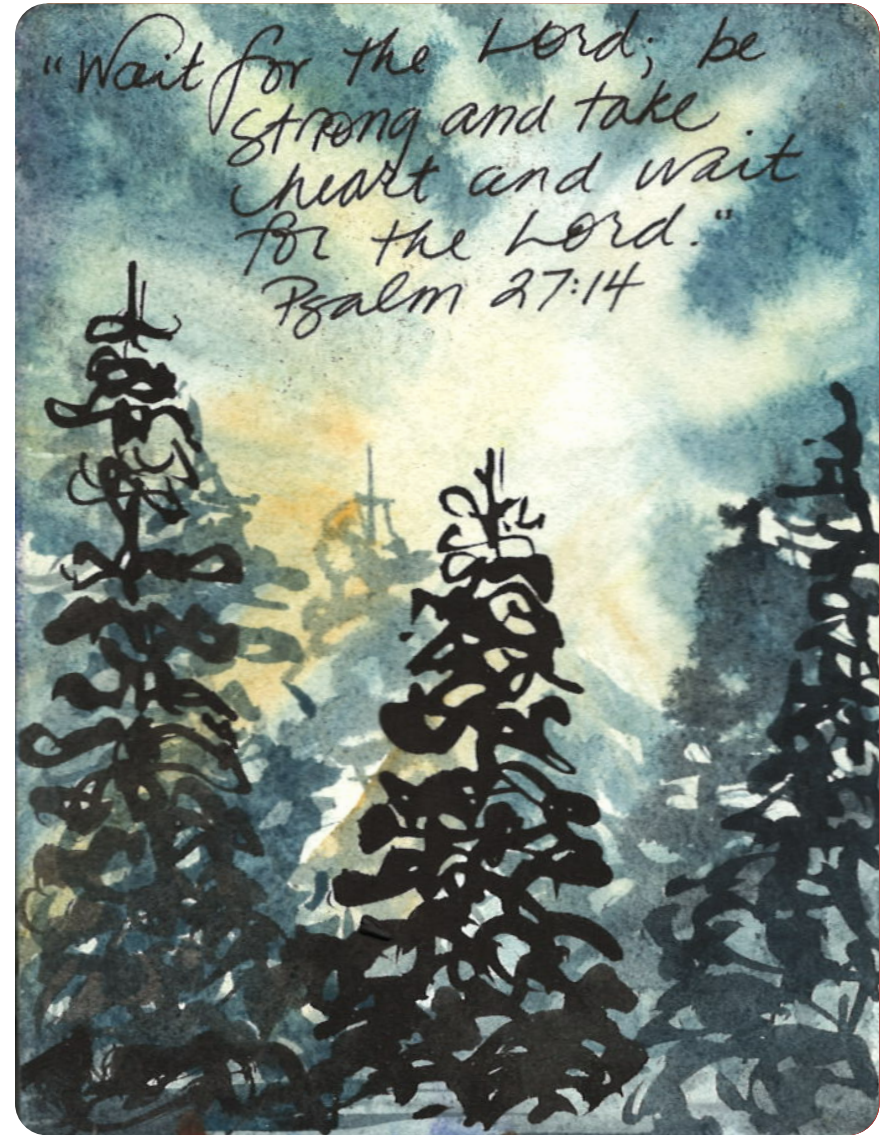 "Wait for the Lord; be
strong and take
heart and wait
for the Lord."
Psalm 27:14